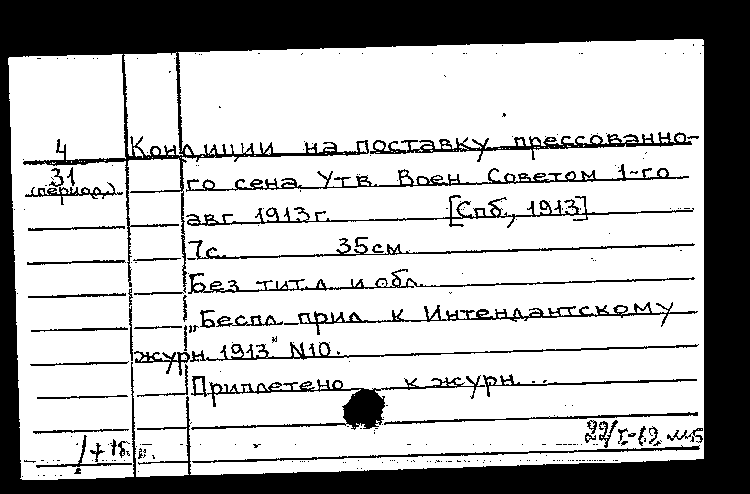 4 Кондиции на поставку прессованно-
31 го сена. Утв. Воен. Советом 1-го
(период.)
авг. 1913г. [Спб., 1913].
7с. 35см.
Без тит.л. и обл.
"Беспл. прил. к Интендантскому
журн. 1913" N10.
Приплетено к журн...
22/I-62 МБ